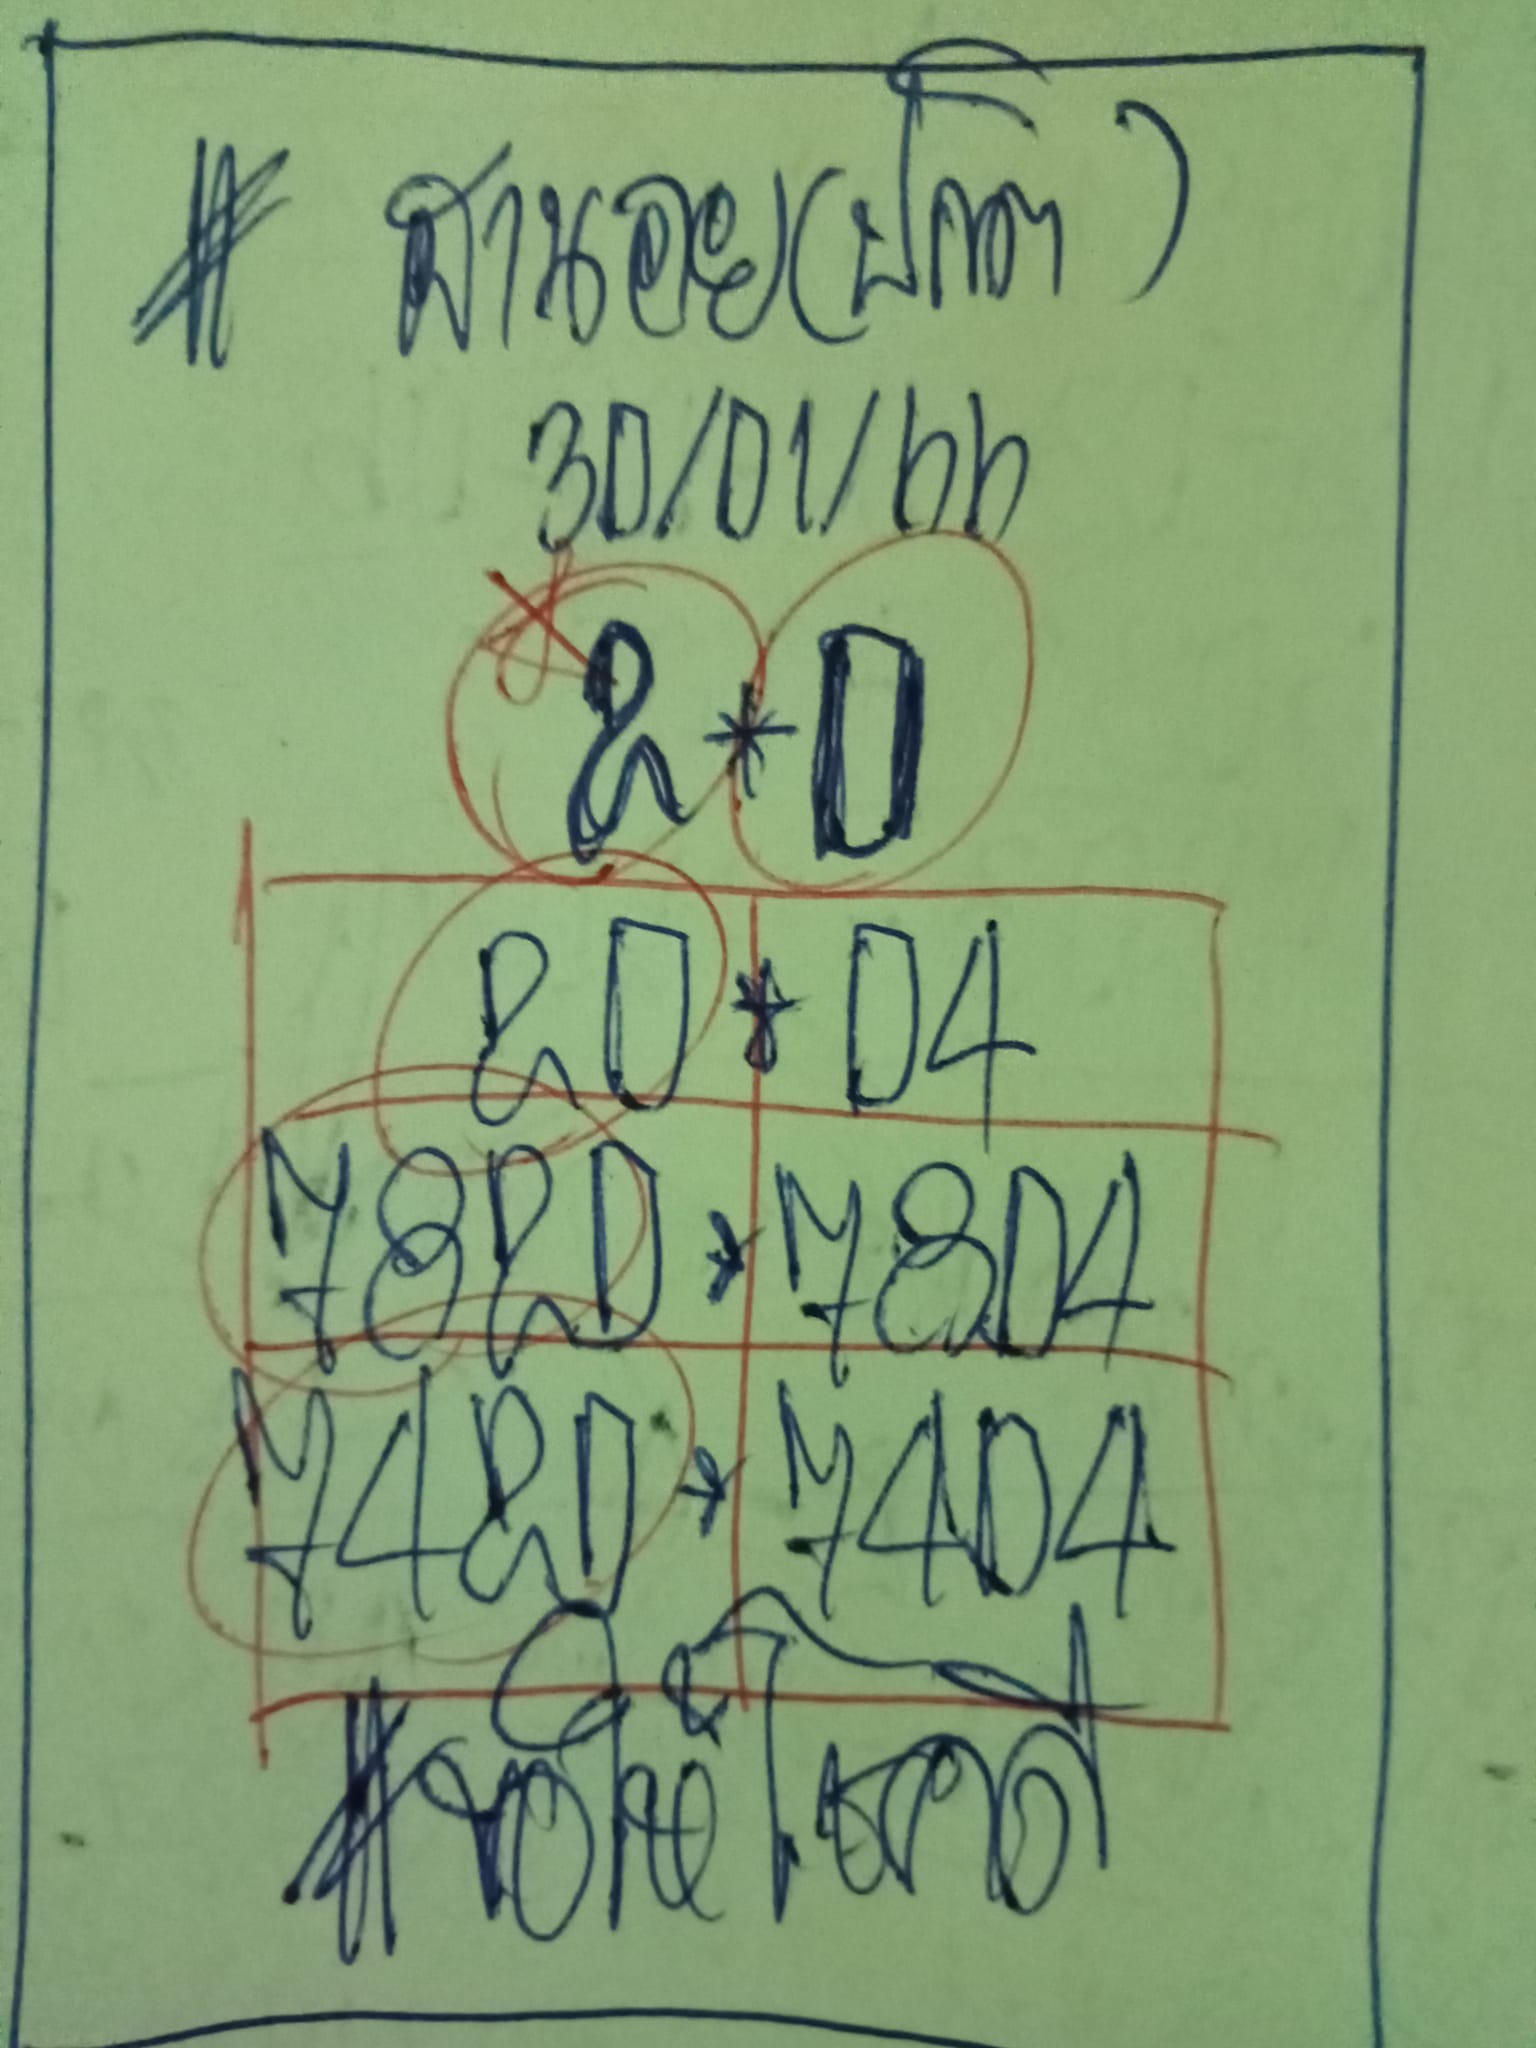 # ฮานอย(ปกติ)
30/01/66
2*0
20*04
7820*7804
7420*7404
#ขอให้โชคดี